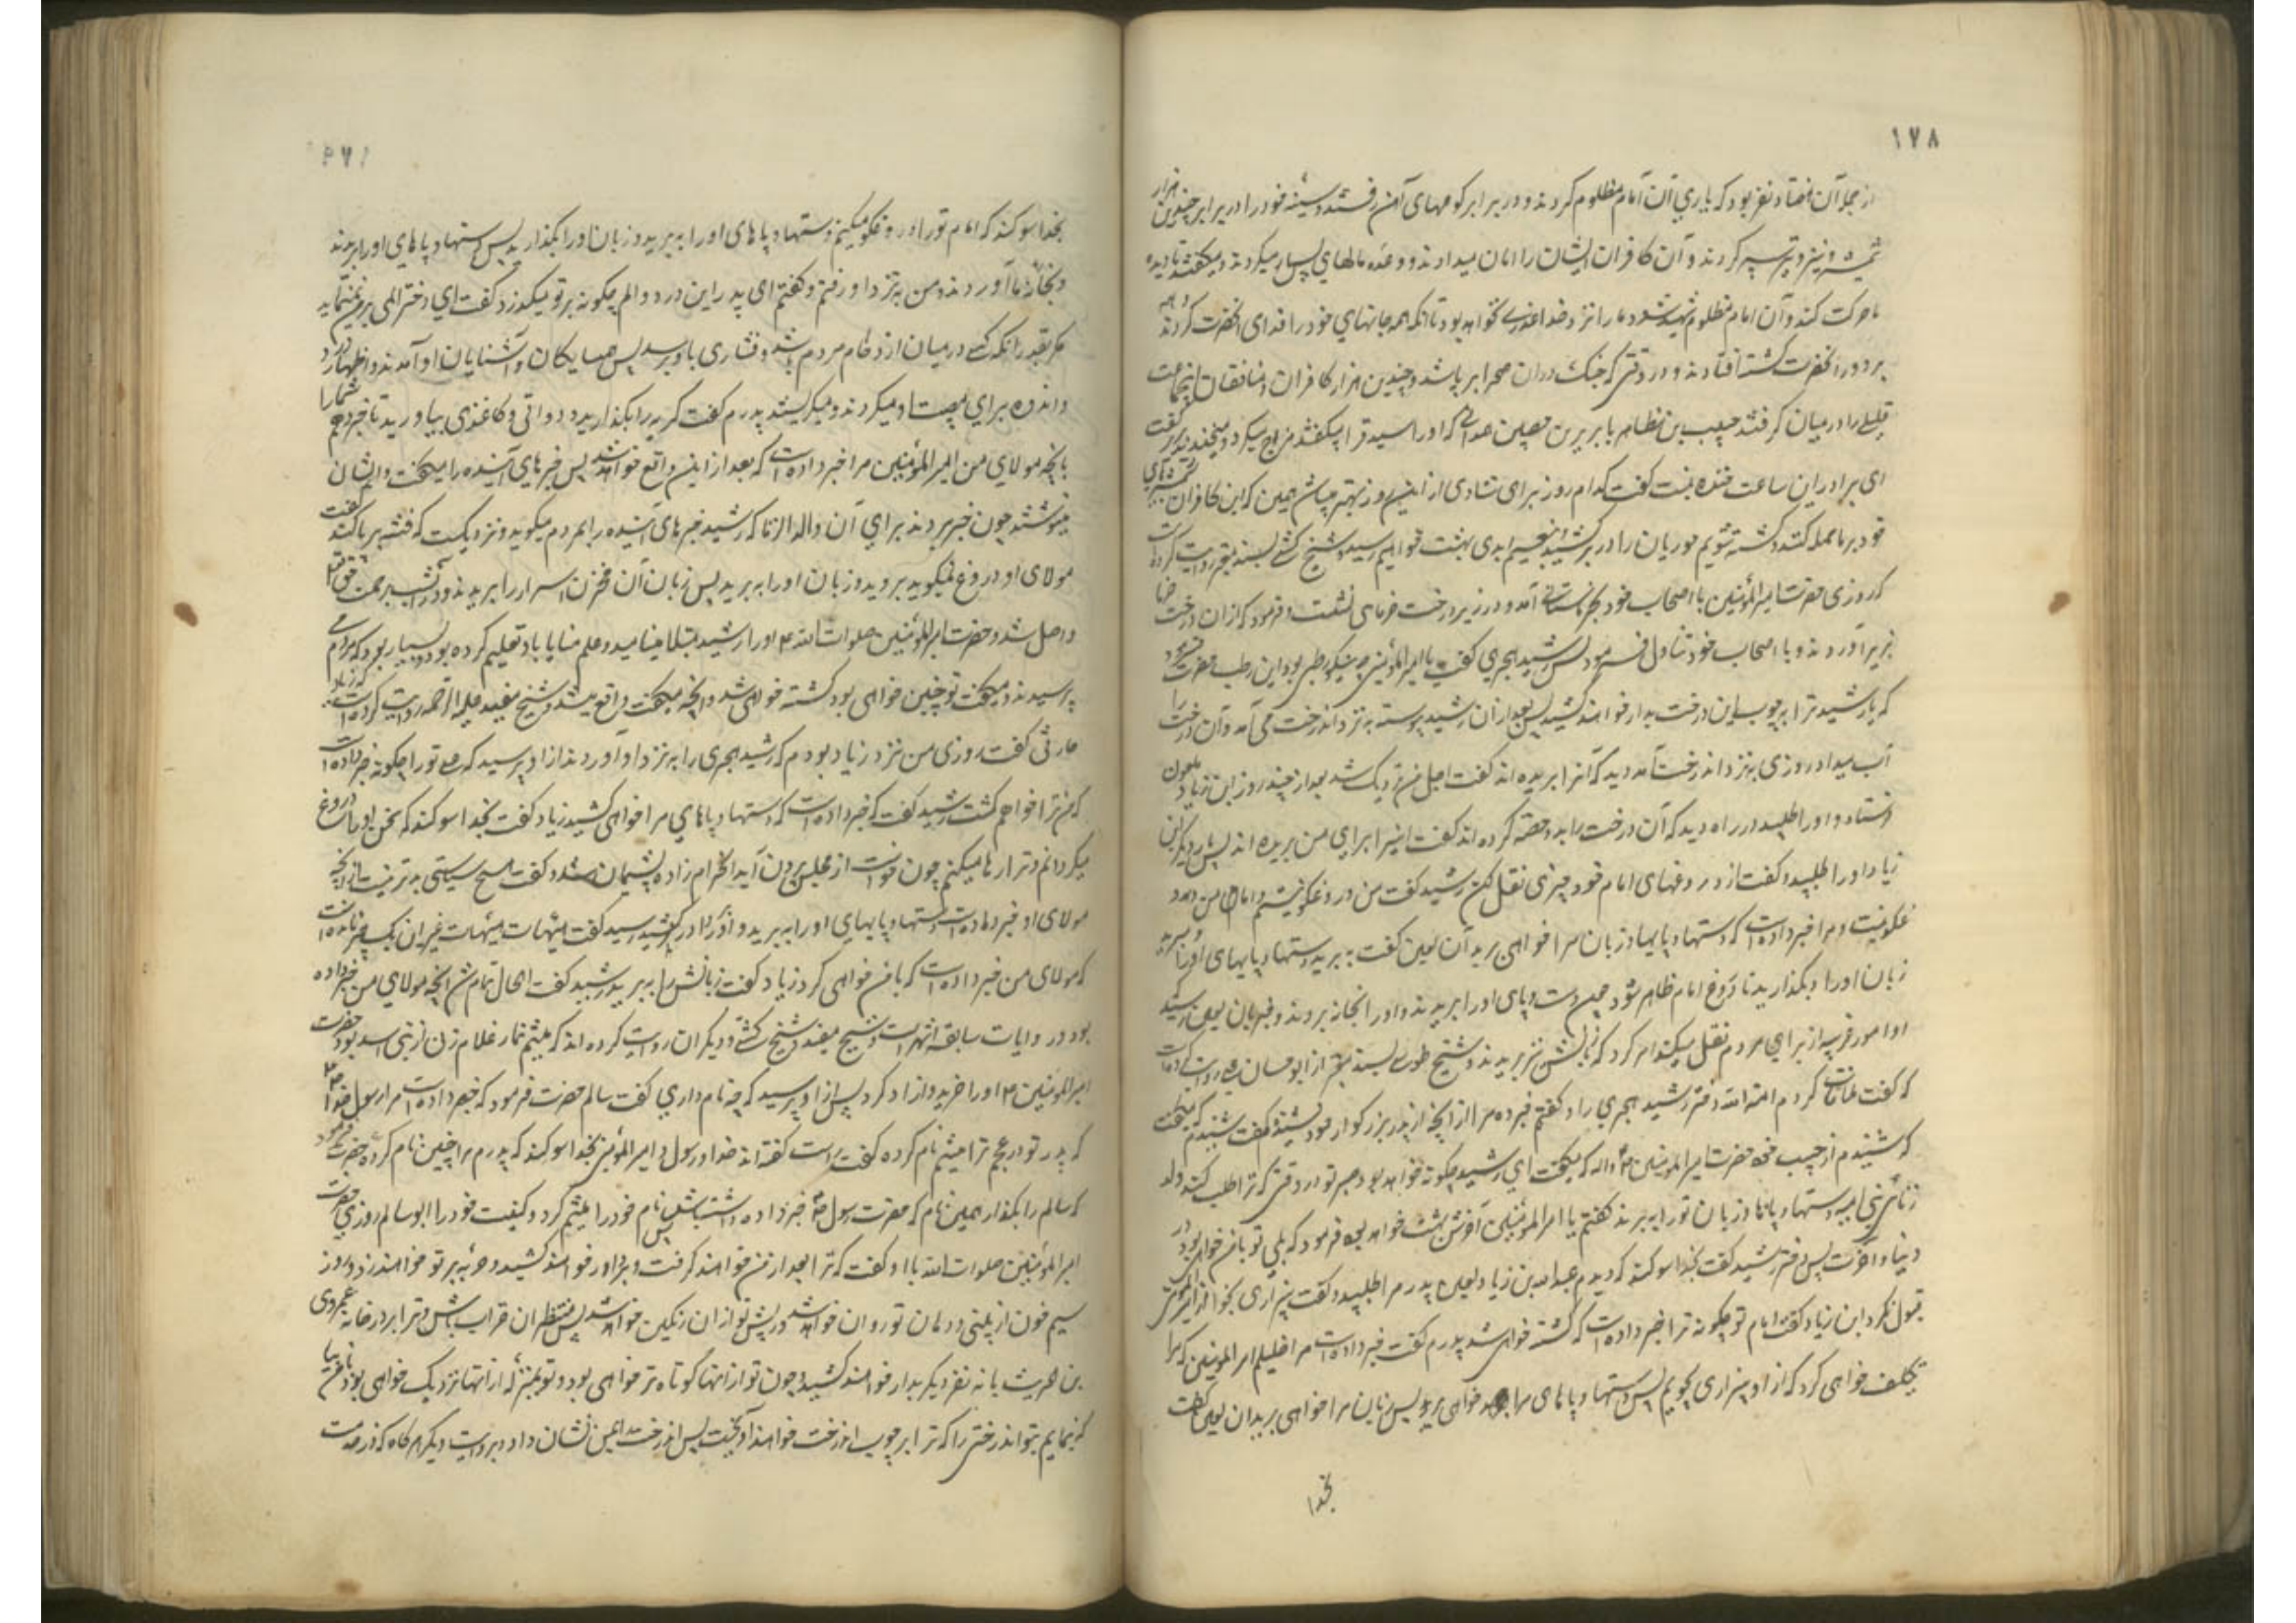 ۱۷۸
از جمله آن هفتاد نفر بود که یاری آن امام مظلوم کردند و در برابر کوههای آهن رفتند و سینه خود را در برابر چندین هزار
شمشیر و نیزه و تیر سپر کردند و آن کافران ایشان را امان میدادند و وعده مالهای بسیار میکردند و میگفتند تا دیده
ما حرکت کند و آن امام مظلوم شهید شود ما را نزد خدا عذری نخواهد بود تا آنکه همه جانهای خود را فدای آنحضرت کردند و همه
بر دور آنحضرت کشته افتادند و در وقتی که جنک در آن صحرا بر پا شد و چندین هزار کافران و منافقان آن جماعت
قلیل را در میان گرفتند حبیب بن مظاهر با بریر بن حصین همدانی که او را سید قرا میگفتند مزاح میکرد و میخندید بریر گفت
ای برادر این ساعت خنده نیست گفت کدام روز برای شادی از این روز بهتر میباشد همین که این کافران شمشیرهای
خود بر ما حمله کنند و کشته شویم حوریان را در بر کشیم و بنعیم ابدی بهشت خواهیم رسید و شیخ کشی بسند معتبر روایت کرده است
که روزی حضرت امیرالمؤمنین با اصحاب خود بخرماستانی آمد و در زیر درخت خرمای نشست و فرمود که از آن درخت خرما
بزیر آوردند و با اصحاب خود تناول فرمود پس رشید هجری گفت یا امیرالمؤمنین چه نیکو رطبی بود این رطب حضرت فرمود
که یا رشید ترا بر چوب این درخت بدار خواهند کشید پس بعد از آن رشید پیوسته به نزد آن درخت می آمد و آن درخت را
آب میداد روزی به نزد آن درخت آمد دید که آنرا بریده اند گفت اجل من نزدیک شد بعد از چند روز ابن زیاد ملعون
فرستاد و او را طلبید در راه دید که آن درخت را بدو حصه کرده اند گفت اینرا برای من بریده اند پس بار دیگر ابن
زیاد او را طلبید و گفت از دروغهای امام خود چیزی نقل کن رشید گفت من دروغگو نیستم و امام من دروغ
غگو نیست و مرا خبر داده است که دستها و پاها و زبان مرا خواهی برید آن لعین گفت به برید دستها و پاهای او را و نبرید
زبان او را و بگذارید تا دروغ امام ظاهر شود چون دست و پای او را بریدند و او را بخانه بردند و خبر بآن لعین رسید
او امور غریبه از برای مردم نقل میکند امر کرد که زبانش نیز بریدند و شیخ طوسی بسند معتبر از ابو حسان روایت کرده است
که گفت ملاقات کردم امة الله دختر رشید هجری را و گفتم خبر ده مرا از آنچه از پدر بزرگوار خود شنیده گفت شنیدم که میگفت
که شنیدم از حبیب خود حضرت امیرالمؤمنین که میگفت ای رشید چگونه خواهد بود صبر تو در وقتی که ترا طلب کند ولد
زنای بنی امیه و دستها و پاها و زبان تو را به برند گفتم یا امیرالمؤمنین آخرش بهشت خواهد بود فرمود که بلی تو با من خواهی بود در
دنیا و آخرت پس دختر رشید گفت بخدا سوگند که دیدم عبدالله بن زیاد لعین پدر مرا طلبید و گفت بیزاری بجو از امیرالمؤمنین
قبول نکرد ابن زیاد گفت امام تو چگونه ترا خبر داده است که کشته خواهی شد پدرم گفت خبر داده است مرا خلیلم امیرالمؤمنین که مرا
تکلیف خواهی کرد که از او بیزاری بجویم پس دستها و پاهای مرا خواهی برید پس زبان مرا خواهی برید آن لعین گفت
بخدا
بخدا سوگند که امام تو را دروغگو میکنم دستها و پاهای او را به برید و زبان او را بگذارید پس دستها و پاهای او را بریدند
و بخانه ما آوردند من به نزد او رفتم و گفتم ای پدر این درد و الم چگونه بر تو میگذرد گفت ای دختر المی بر من نمینماید
مگر بقدر آنکه کسی در میان ازدحام مردم باشد و فشاری باو برسد پس همسایگان و آشنایان او آمدند و اظهار درد
و اندوه برای مصیبت او میکردند و میگریستند پدرم گفت گریه را بگذارید و دواتی و کاغذی بیاورید تا خبر دهم شما را
بآنچه مولای من امیرالمؤمنین مرا خبر داده است که بعد از این واقع خواهد شد پس خبرهای آینده را میگفت و ایشان
مینوشتند چون خبر بردند برای آن ولدالزنا که رشید خبرهای آینده را بمردم میگوید و نزدیکست که فتنه بر پا کند گفت
مولای او دروغ نمیگوید بروید و زبان او را به برید پس زبان آن مخزن اسرار را بریدند و در آن شب برحمت حق تعالی
واصل شد و حضرت امیرالمؤمنین صلوات الله علیه او را رشید مبتلا مینامید و علم منایا باو تعلیم کرده بود و بسیار بود که بمردم می
رسید و میگفت تو چنین خواهی بود و کشته خواهی شد و آنچه میگفت واقع میشد و شیخ مفید علیه الرحمه روایت کرده است که زیاد بن
حارثی گفت روزی من نزد زیاد بودم که رشید هجری را به نزد او آوردند از او پرسید که تو را چگونه خبر داده است
که من ترا خواهم کشت رشید گفت که خبر داده است که دستها و پاهای مرا خواهی کشید زیاد گفت بخدا سوگند که سخن او را دروغ
میگردانم و ترا رها میکنم چون خواست از مجلس بیرون آید آن حرام زاده پشیمان شد و گفت هیچ سیاستی بدتر نیست از آنچه
مولای او خبر داده است دستها و پاهای او را به برید و او را در کشید رشید گفت هیهات هیهات غیر از آن یک چیز مانده است
که مولای من خبر داده است که با من خواهی کرد زیاد گفت زبانش را به برید رشید گفت الحال تمام شد آنچه مولای من خبر داده
بود در روایات سابقه اشهر است و شیخ مفید و شیخ کشی و دیگران روایت کرده اند که میثم تمار غلام زنی از بنی اسد بود حضرت
امیرالمؤمنین او را خرید و آزاد کرد پس از او پرسید که چه نام داری گفت سالم حضرت فرمود که خبر داده است مرا رسول خدا
که پدر تو در عجم ترا میثم نام کرده گفت راست گفته اند خدا و رسول و امیرالمؤمنین بخدا سوگند که پدرم مرا چنین نام کرده حضرت فرمود
که سالم را بگذار و همین نام که حضرت رسول خبر داده داشته باش پس نام خود را میثم کرد و کنیت خود را ابو سالم روزی حضرت
امیرالمؤمنین صلوات الله با او گفت که ترا بعد از من خواهند گرفت و بدار خواهند کشید و حربه بر تو خواهند زد و روز
سیم خون از بینی و دهان تو روان خواهد شد و ریش تو از آن رنگین خواهد شد پس منتظر آن خضاب باش و ترا بر در خانه عمرو
بن حریث با نه نفر دیگر بدار خواهند کشید و چوب تو از آنها کوتاه تر خواهی بود و تو بمنزله از آنها نزدیک خواهی بود با من بیا
که بنمایم بتو آن درختی را که ترا بر چوب آن درخت خواهند آویخت پس آن درخت را بمن نشان داد و بروایت دیگر